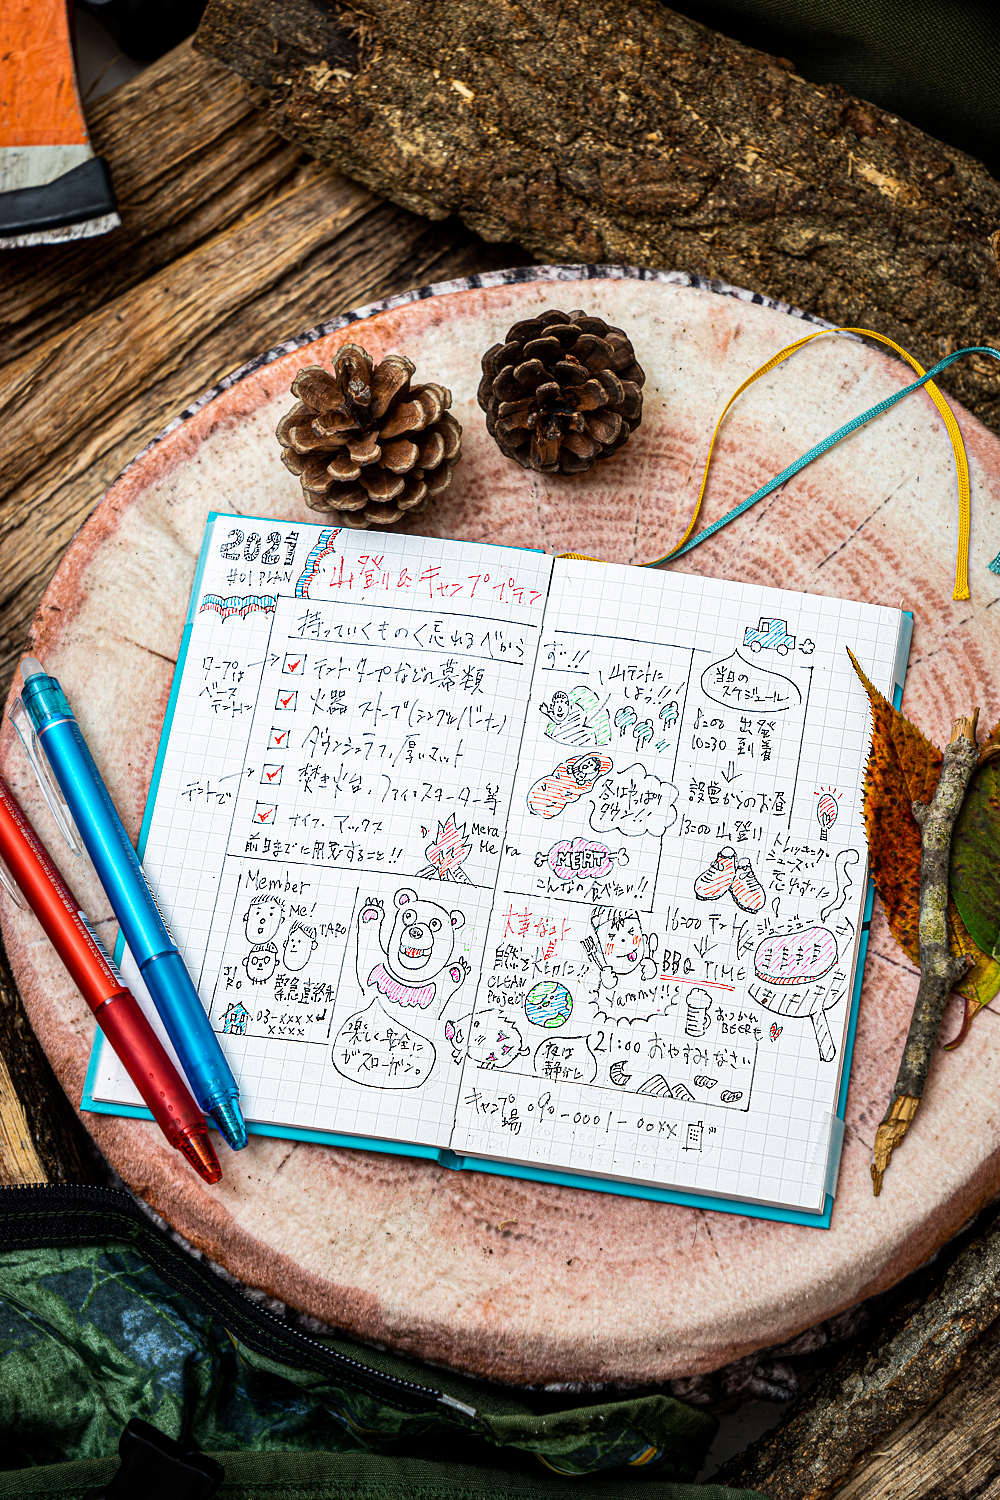 2021
#01 PLAN
山登り&キャンププラン
持っていくもの〈忘れるべからず!!
タープは
ベース
テントに
テント・タープなどの幕類
火器 ストーブ(シングルバーナ)
ダウンシュラフ/厚いマット
テントで
焚き火台、ファイヤースターター等
ナイフ、アックス
前日までに用意すること!!
Mera
Mera
Member
Me!
TARO
JIRO
緊急連絡先
03-xxxx
xxxx
楽しく安全に
がスローガン。
山テントに
しよう!!!
冬はやっぱり
ダウン!!
MEAT
こんなの食べたい!!
大事なコト
自然を大切に!!
CLEAN
Project
Yummy!!
夜は
静かに
キャンプ場 090-0001-00xx
当日の
スケジュール
8:00 出発
10:30 到着
設営からのお昼
13:00 山登り
トレッキング
シューズ
忘れずに
16:00 テント
BBQ TIME
ジュージュー
おつかれ
BEER
21:00 おやすみなさい